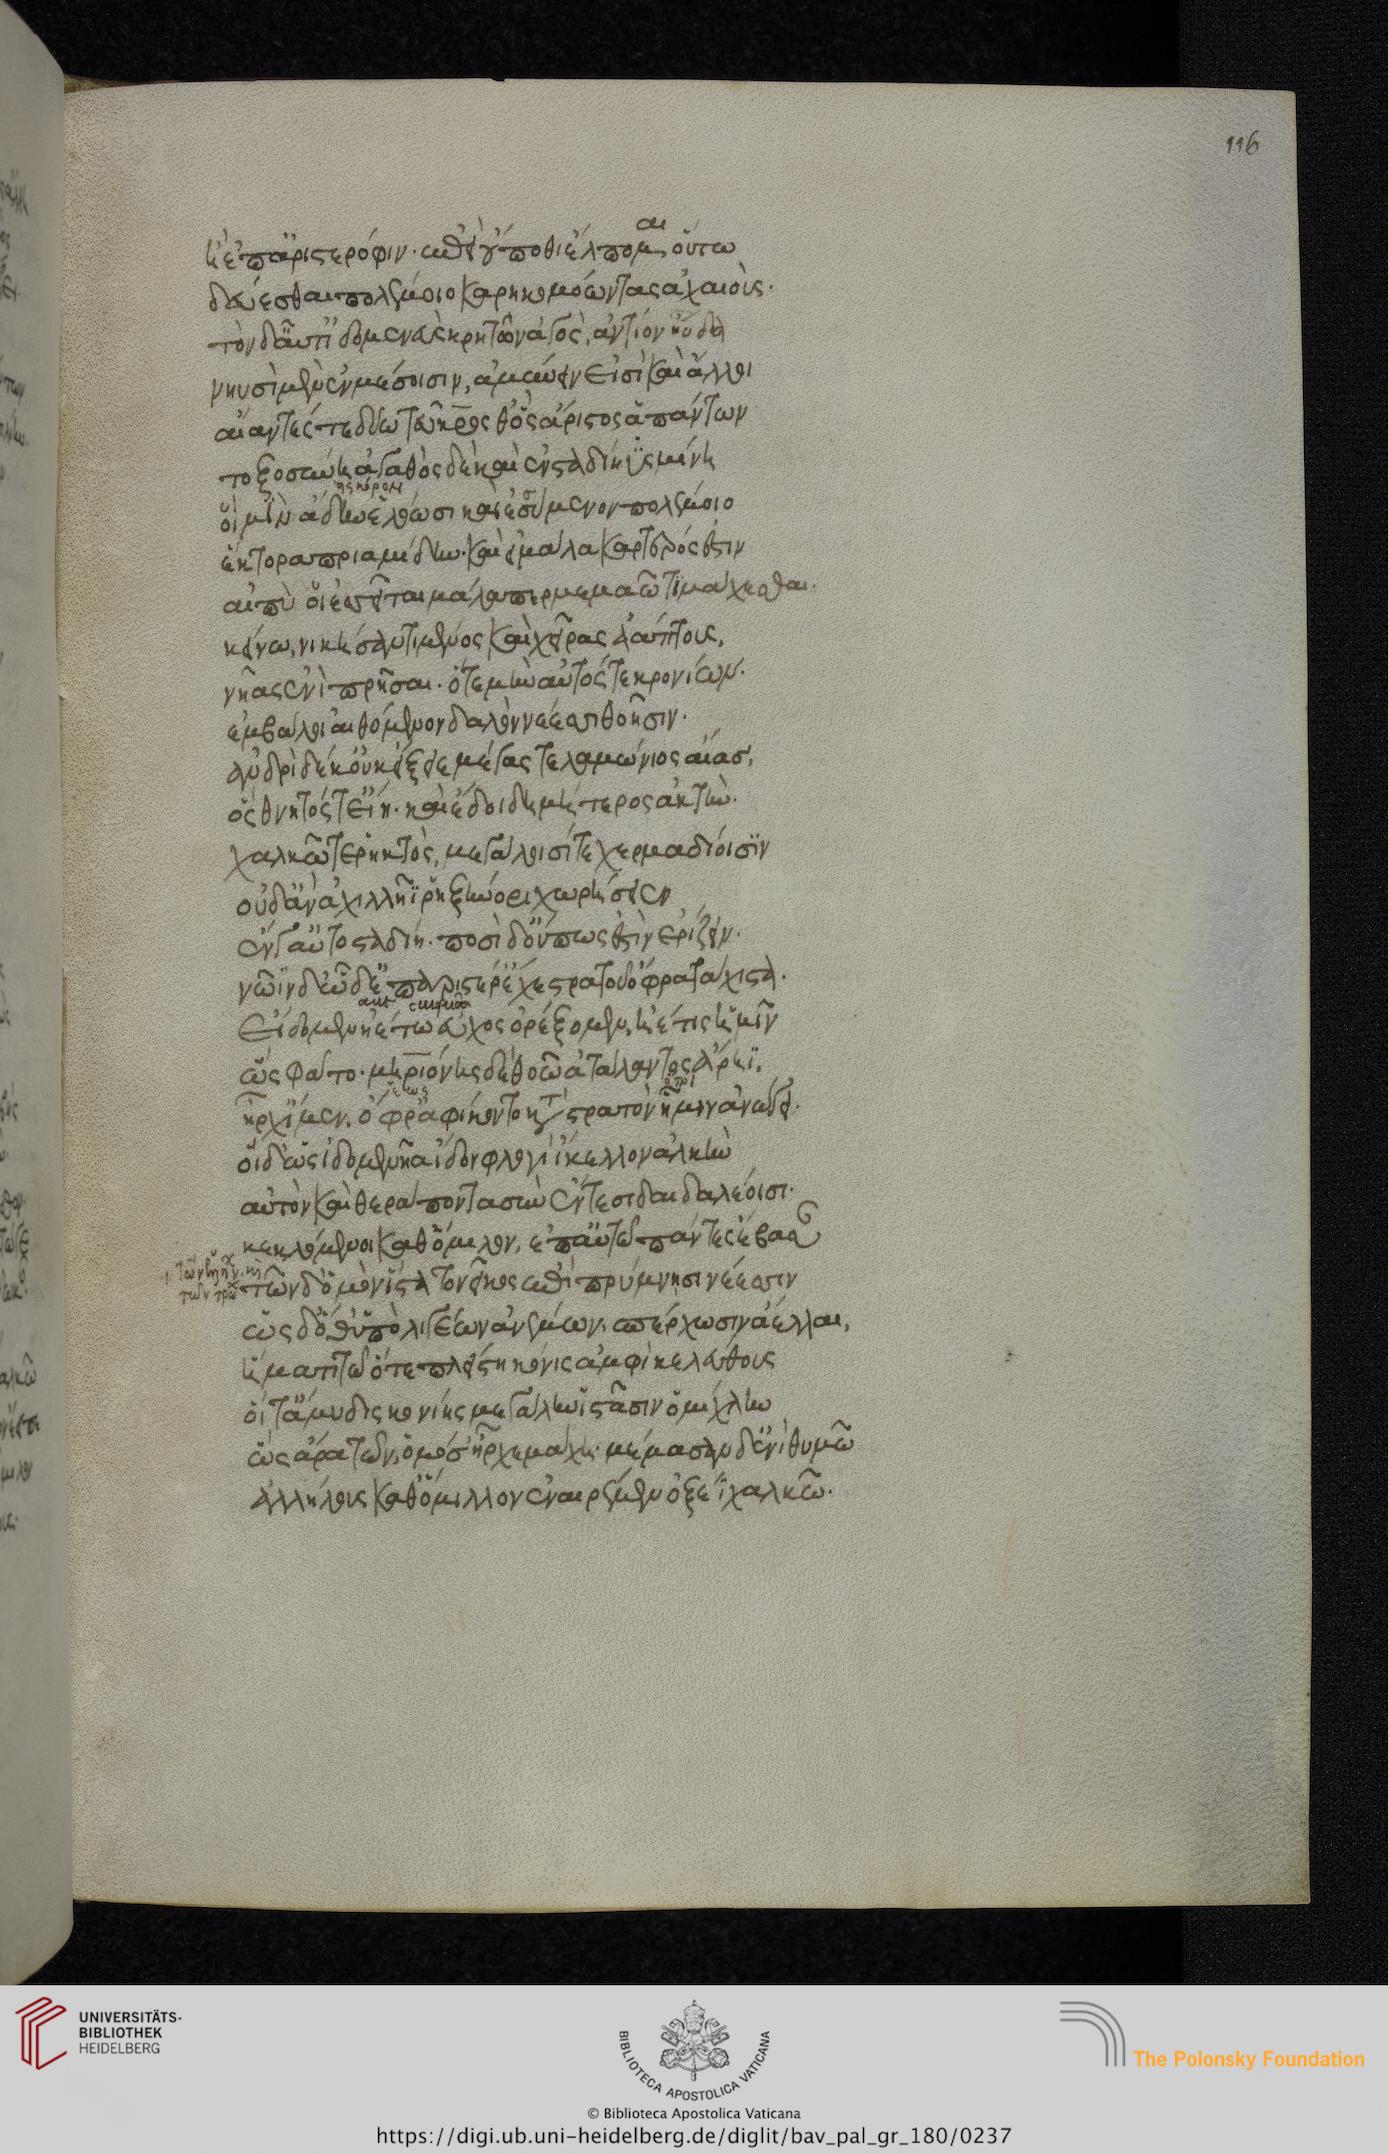 ἢ ἐπ' ἀριστερόφιν. ἐπεὶ οὔ ποθι ἔλπομαι οὕτω
δεύεσθαι πολέμοιο καρηκομόωντας ἀχαιούς.
τὸν δ' αὖτ' ἰδομενεὺς κρητῶν ἀγὸς, ἀντίον ηὔδα
νηυσὶ μὲν ἐν μέσοισιν, ἀμύνειν εἰσὶ καὶ ἄλλοι
αἴαντές τε δύω τεῦκρος θ' ὃς ἄριστος ἁπάντων
τοξοσύνη ἀγαθὸς δὲ καὶ ἐν σταδίη ὑσμίνη
οἵ μιν ἄδην ἐλόωσι καὶ ἐσσύμενον πολέμοιο
ἕκτορα πριαμίδην. καὶ εἰ μάλα καρτερός ἐστιν
αἰπύ οἱ ἐσεῖται μάλα περ μεμαῶτι μάχεσθαι.
κείνων, νικήσαντι μένος καὶ χεῖρας ἀάπτους,
νῆας ἐνὶ πρῆσαι. ὅτε μὴ αὐτός γε κρονίων.
ἐμβάλοι αἰθόμενον δαλὸν νέεσσι θοῆσιν.
ἀνδρὶ δέ κ' οὐκ εἴξειε μέγας τελαμώνιος αἴας,
ὃς θνητός τ' εἴη. καὶ ἔδοι δημήτερος ἀκτὴν.
χαλκῶ τε ῥηκτὸς, μεγάλοισί τε χερμαδίοισϊν
οὐδ' ἂν ἀχιλλῆϊ ῥηξήνορι χωρήσειεν
ἔν γ' αὐτοσταδίη. ποσὶ δ' οὔπως ἐστὶν ἐρίζειν.
νῶϊν δ' ὧδ' ἐπ' ἀριστέρ' ἔχε στρατοῦ ὄφρα τάχιστα.
εἴδομεν ἠέ τω εὖχος ὀρέξομεν, ἠέ τις ἡμῖν
ὣς φάτο. μηριόνης δὲ θοῶ ἀτάλαντος ἄρηϊ.
ἦρχ' ἴμεν. ὄφρ' ἀφίκοντο κατὰ στρατὸν ἧ μιν ἀνώγει.
οἳ δ' ὡς ἰδομενῆα ἴδον φλογὶ ἴκελλον ἀλκὴν
αὐτὸν καὶ θεράποντα σὺν ἔντεσι δαιδαλέοισι.
κεκλόμενοι καθ' ὅμιλον, ἐπ' αὐτῶ πάντες ἔβαν
τῶν δ' ὁμὸν ἵστατο νεῖκος ἐπὶ πρύμνησι νέεσσιν
ὡς δ' ὅθ' ὑπὸ λιγέων ἀνέμων, σπέρχωσιν ἄελλαι,
ἤματι τῶ ὅτε πλείστη κόνις ἀμφὶ κελεύθους
οἵ τ' ἄμυδις κονίης μεγάλην ἱστᾶσιν ὀμίχλην
ὣς ἄρα τῶν, ὁμόσ' ἦρχε μάχη. μέμασαν δ' ἐνὶ θυμῶ
ἀλλήλους καθ' ὅμιλλον ἐναιρέμεν ὀξέϊ χαλκῶ.
116
UNIVERSITÄTS-
BIBLIOTHEK
HEIDELBERG
BIBLIOTECA APOSTOLICA VATICANA
The Polonsky Foundation
© Biblioteca Apostolica Vaticana
https://digi.ub.uni-heidelberg.de/diglit/bav_pal_gr_180/0237